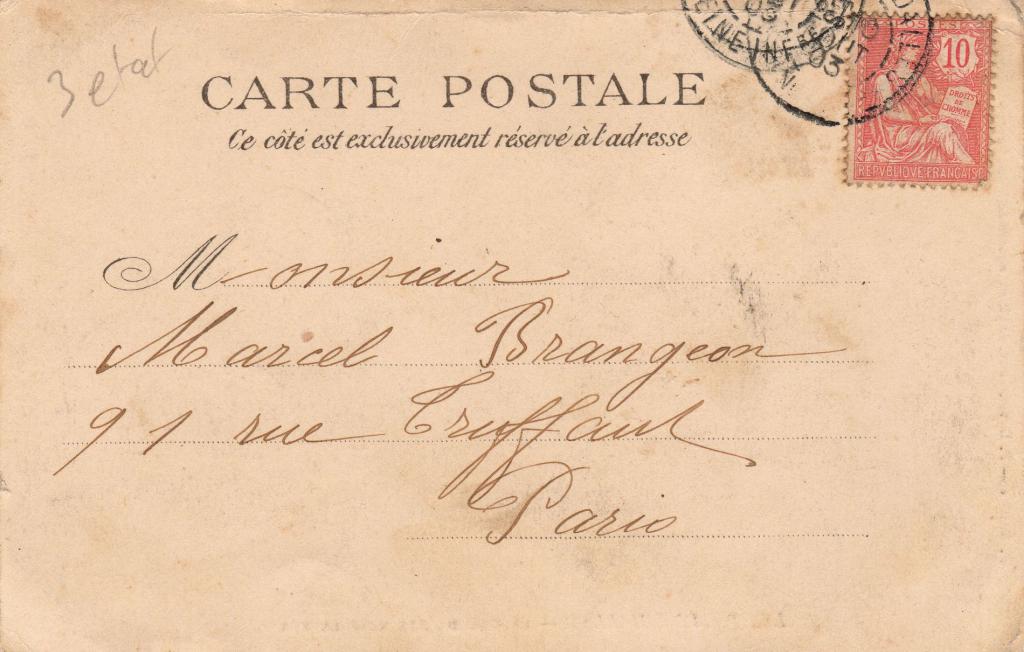 3 etat
CARTE POSTALE
Ce côté est exclusivement réservé à l'adresse
POSTES
10
DROITS
DE
L'HOMME
REPVBLIQVE FRANÇAISE
AOUT
03
Monsieur
Marcel Brangeon
91 rue Truffaut
Paris